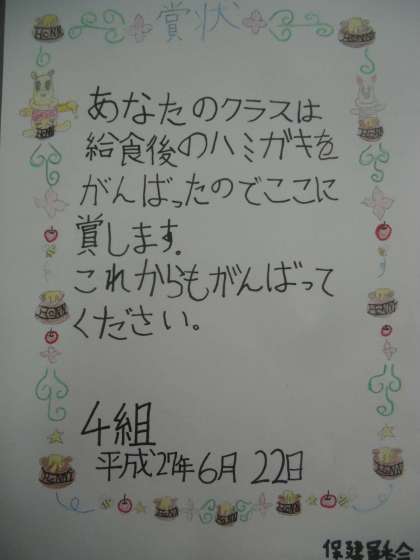 賞状
あなたのクラスは
給食後のハミガキを
がんばったのでここに
賞します.
これからもがんばって
ください。
4組
平成27年6月22日
保健委員会